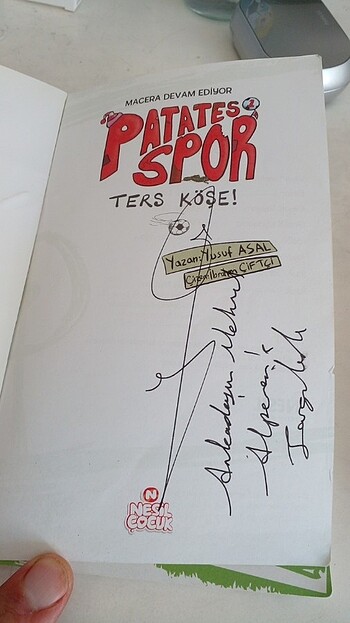 MACERA DEVAM EDİYOR
PATATES
SPOR 2
TERS KÖŞE!
Yazan: Yusuf ASAL
Çizen: İbrahim ÇİFTÇİ
Arkadaşım
Alperen'e
N
NESİL
ÇOCUK